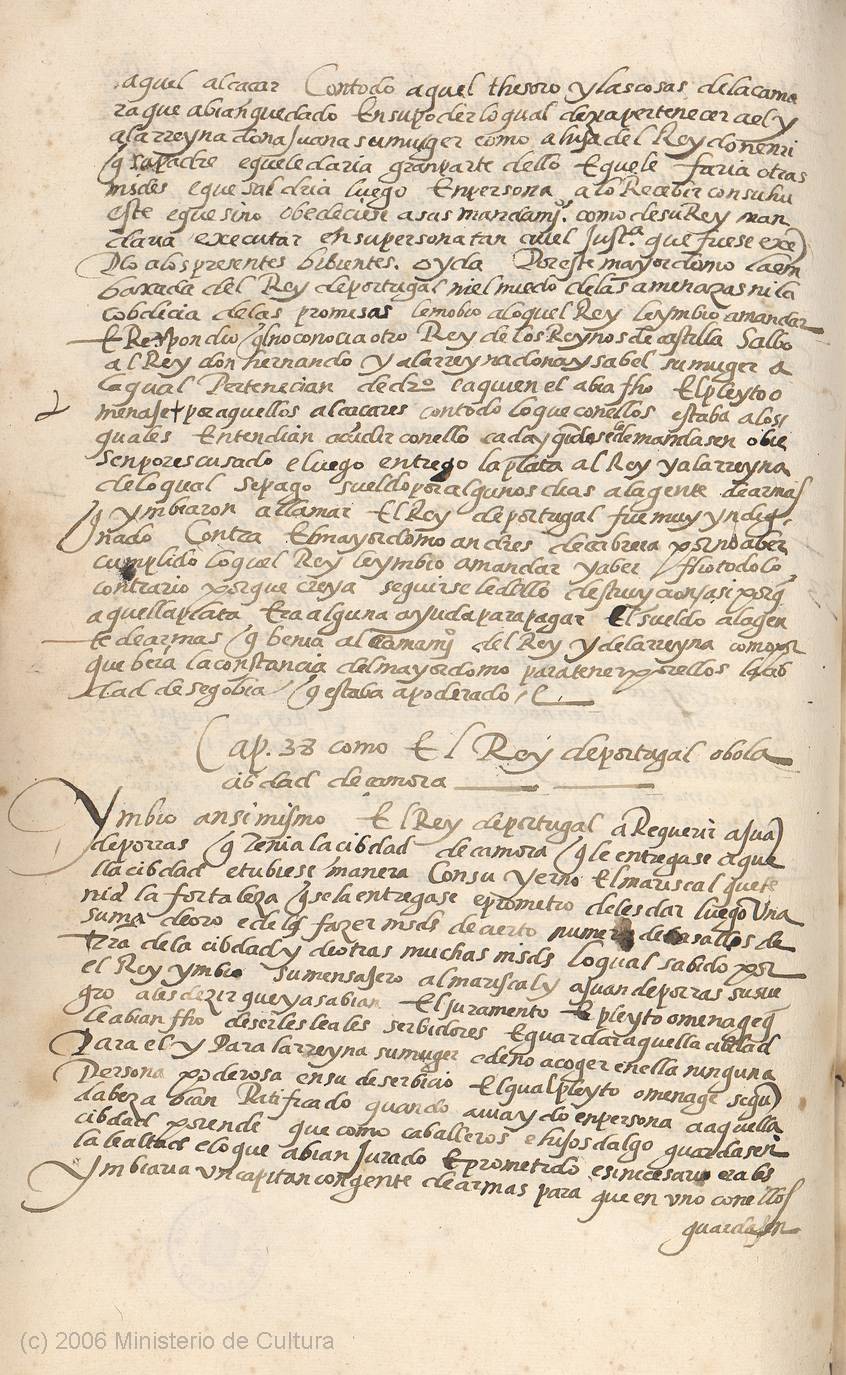 aquel alcaçar Contodo aquel thesoro y las cosas de la cama
ra que abian quedado En su poder lo qual dexa pertenecer a el y
a la rreyna doña Juana su muger como a hija del Rey don enrri
q su padre e que le daria gran parte dello E que le faria otras
mrds e que saldria luego En persona a lo Recebir con su hu
este e que si no obedeciese a sus mandamjos. como de su Rey man
daria executar en su persona tan cruel Justa que fuese exe
plo a los presentes bibientes. oyda Por este mayordomo la em
baxada del Rey de portugal ni el miedo de las amenazas ni la
cobdicia de las promisas le mobio a lo quel Rey le ymbio a mandar
E Respondio q no conocia otro Rey de los Reynos de castilla Salbo
al Rey don hernando y a la rreyna doña ysabel su muger a
la qual Pertenecian de dro e a quien el abia fho El pleyto o
menaje por aquellos alcaçares con todo lo que con ellos estaba a los
quales Entendian acudir con ello cada y qdo se le demandasen obie
sen por escusado e luego entrego la plata al Rey y a la rreyna
de lo qual se pago sueldo por algunos dias a la gente de armas
q ymbiaron a llamar El Rey de portugal fue muy yndig
nado Contra El mayordomo andres de cabrera por no aber
cumplido lo quel Rey le ymbio a mandar y aber fho todo lo
contrario porque creya seguirse le dello destruycon asi porq
aquella plata Era alguna ayuda para pagar El sueldo a la gen
te de armas q benia al llamamjo del Rey y de la rreyna como por
que beia la constancia del mayordomo para tener por ellos la cib
dad de segobia q estaba apoderado
Cap. 38 como El Rey de portugal obo la
cibdad de çamora
Ymbio ansimismo El Rey de portugal a Requerir a Jua
de porras q tenia la cibdad de çamora q le entregase aque
lla cibdad e tubiese manera Con su yerno El mariscal que te
nia la fortaleza q se la entregase e prometio de les dar luego Vna
suma de oro e de les fazer mrds de cierto numero de basallos de
trra de la cibdad y de otras muchas mrds lo qual sabido por
el Rey ymbio su mensajero al mariscal y a Juan de porras su sue
gro a les dezir que ya sabian El juramento E pleyto omenage q
le abian fho de serles leales serbidores E guardar aquella cibdad
Para el y Para la rreyna su muger e de no acoger en ella ninguna
Persona poderosa en su deserbicio El qual pleyto omenage segu
da bez abian Ratificado quando a uia ydo en persona a aquella
cibdad por ende que como caballeros e hijosdalgo guardasen
la lealtad e lo que abian Jurado E prometido e si necesario era les
Ymbiaria vn capitan con gente de armas para que en vno con ellos
guardasen
(c) 2006 Ministerio de Cultura